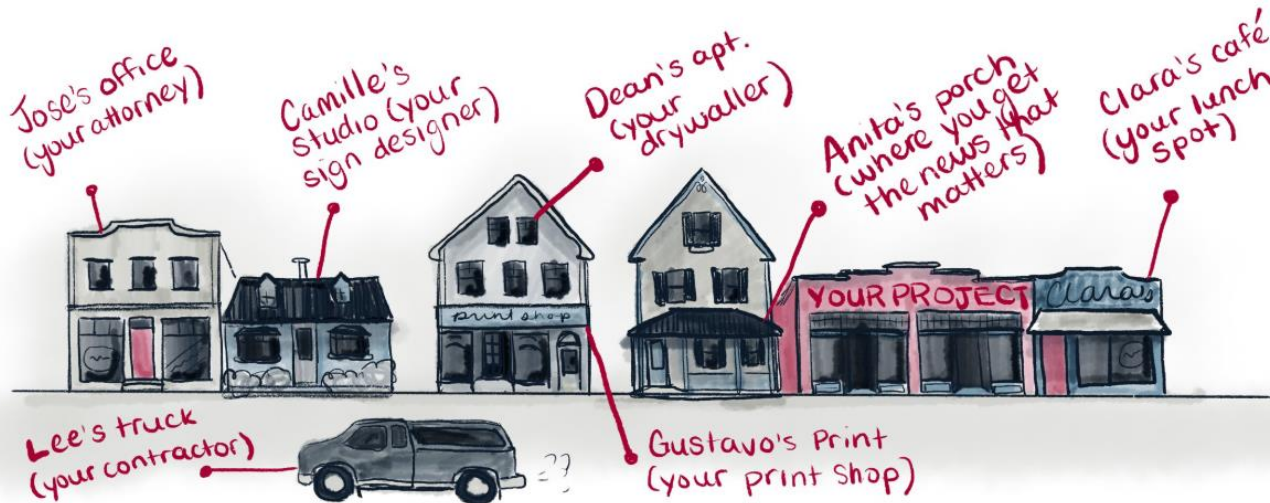 Jose's office
(your attorney)
Camille's
studio (your
sign designer)
Dean's apt.
(your
drywaller)
Anita's porch
(where you get
the news that
matters)
Clara's café
(your lunch
spot)
print shop
YOUR PROJECT
Clara's
Lee's truck
(your contractor)
??
Gustavo's Print
(your print shop)